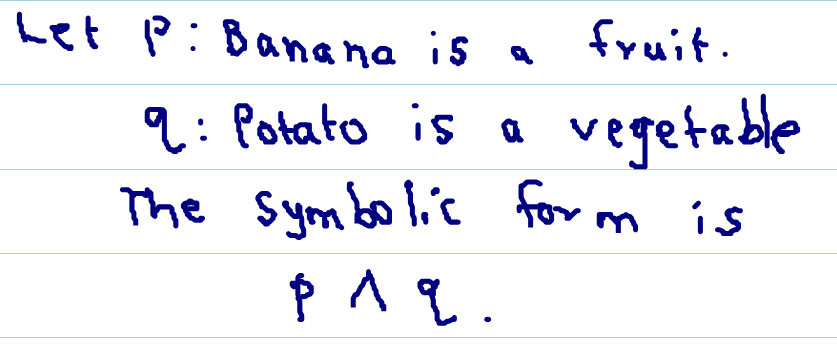 Let P: Banana is a fruit.
q: Potato is a vegetable
The symbolic form is
p ∧ q.